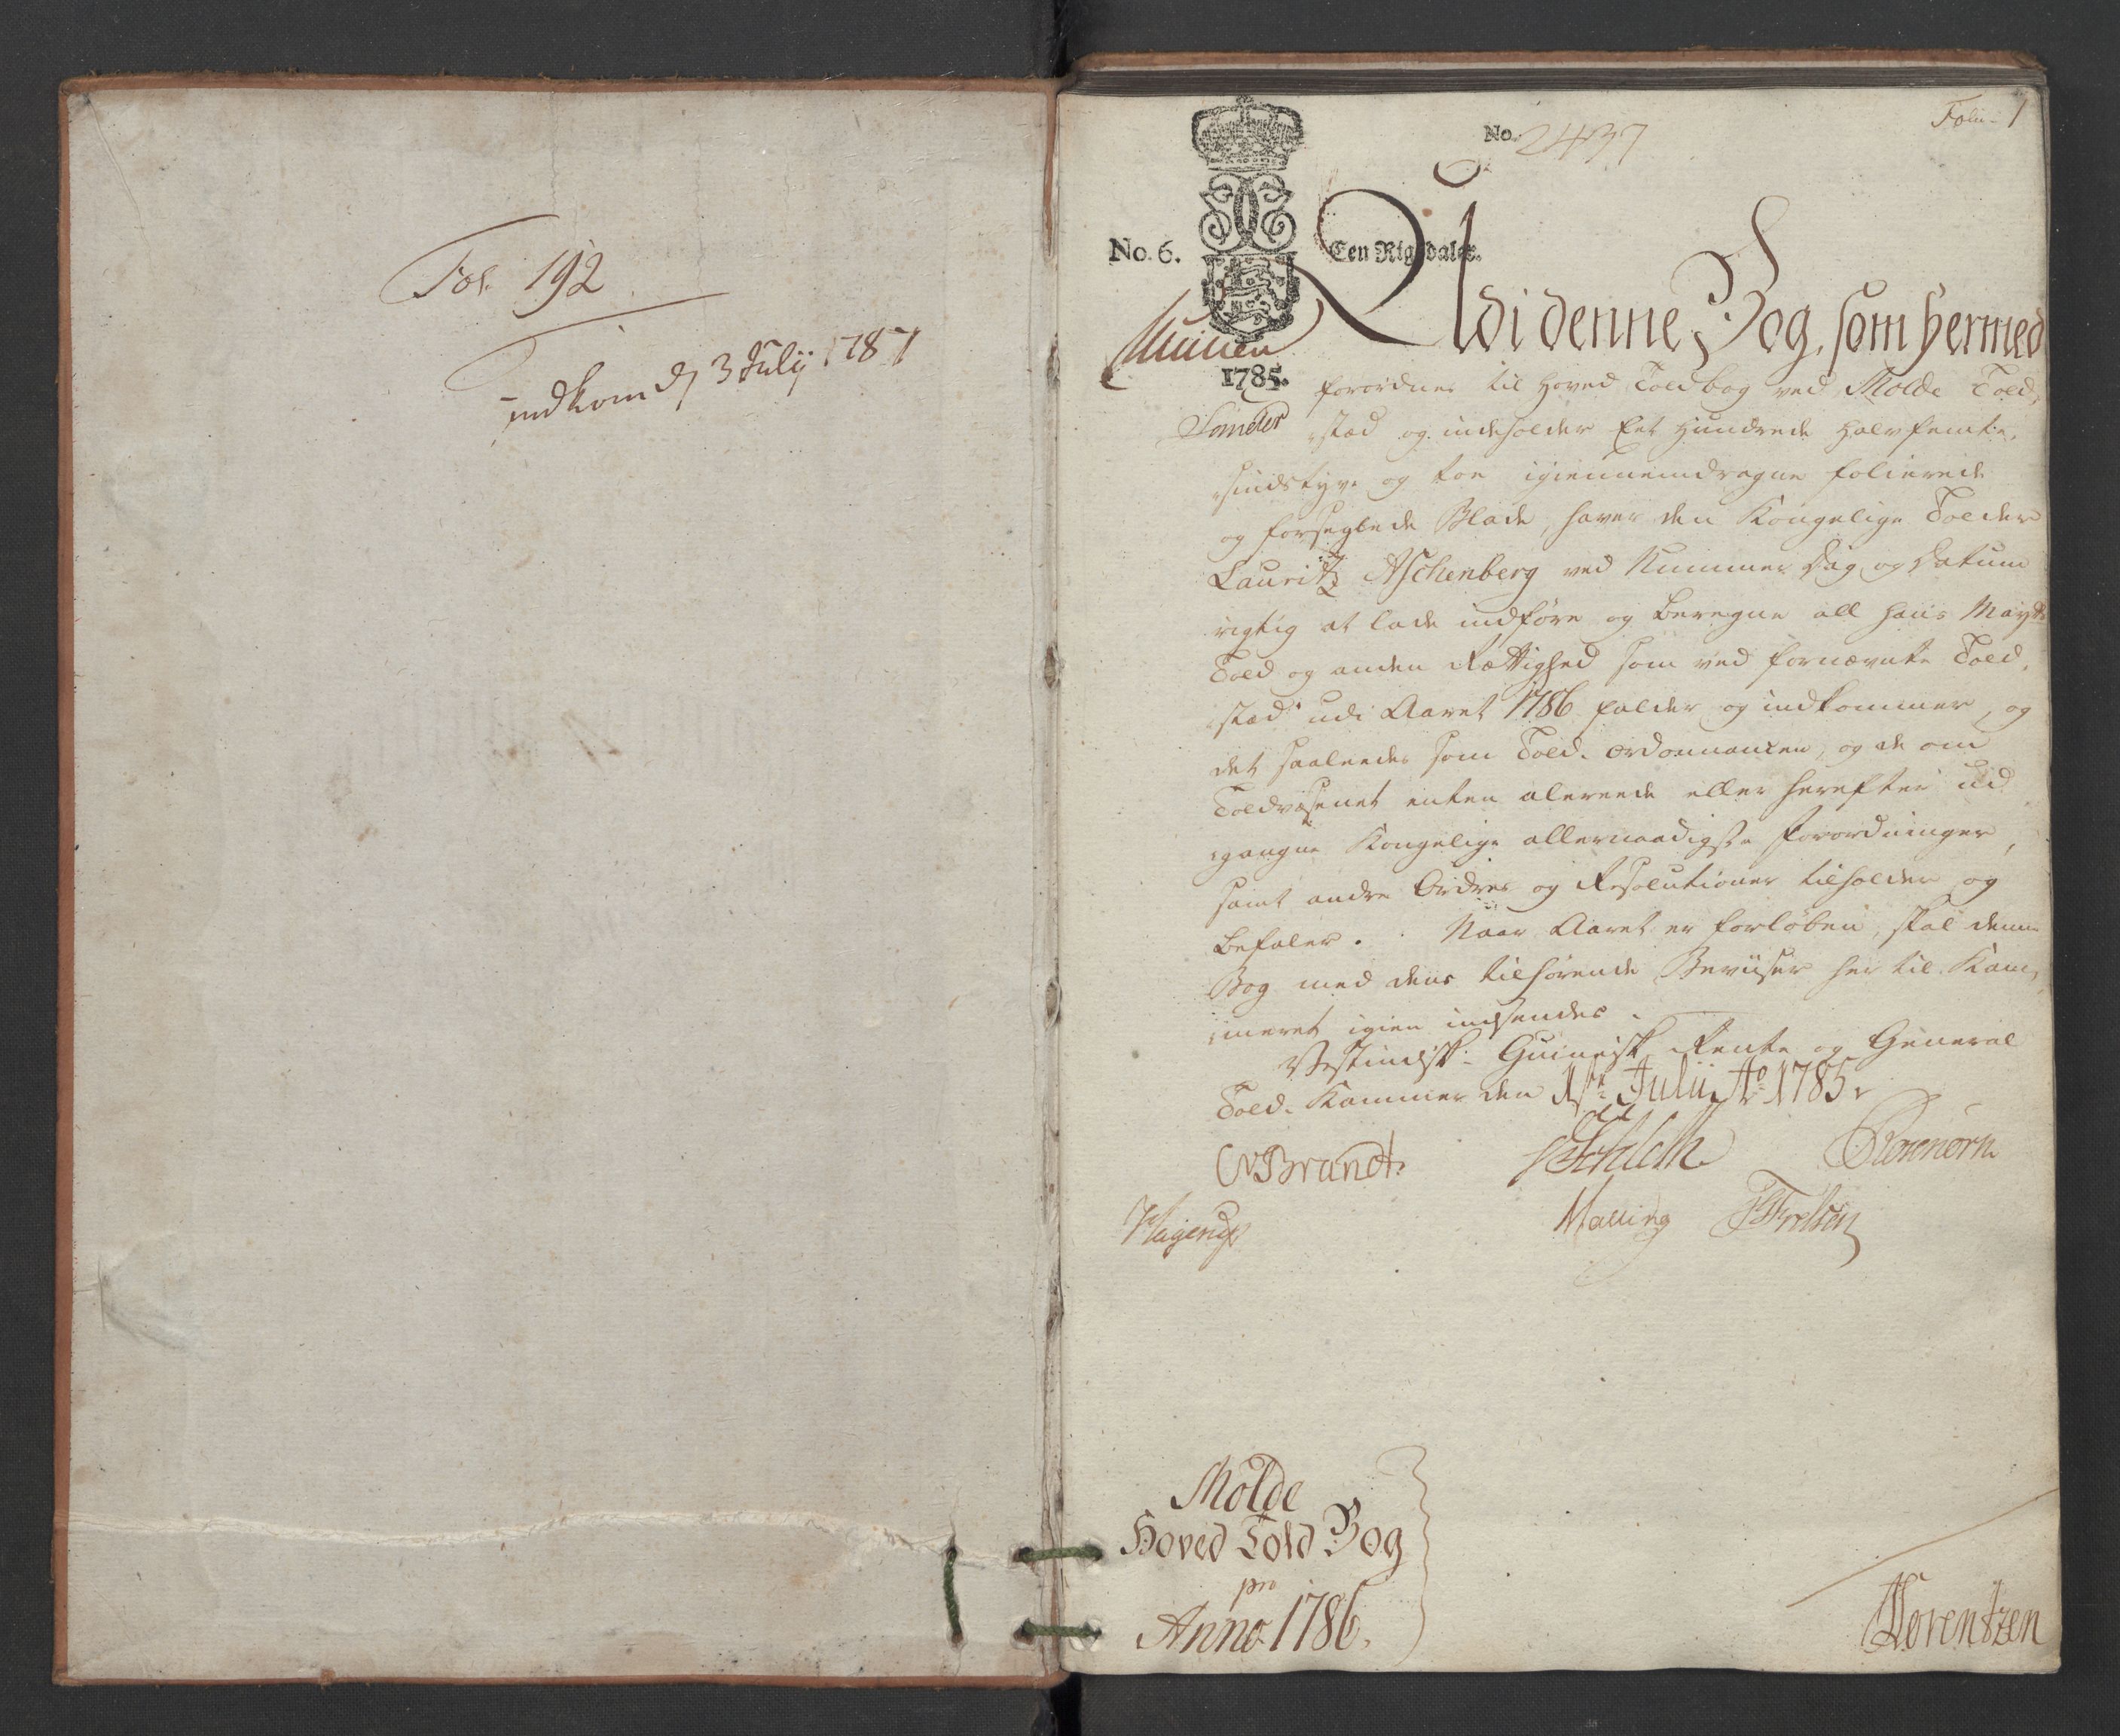 Fol. 192
indkom d 3 Julij 1787
Folio 1
No. 2437
No. 6.
Een Rigsdaler.
1785.
Udi denne Bog, som hermed
forordnes til Hoved Toldbog ved Molde Told,
stæd og indeholder Eet Hundrede Halvfemte,
sindstyve og toe igiennemdragne folierede
og forseglede Blade, haver den Kongelige Tolder
Lauritz Aschenberg ved Nummer Dag og Datum
rigtig at lade indføre og beregne all Hans Mayts
Told og anden Rettighed som ved fornævnte Told,
stæd udi Aaret 1786 falder og indkommer, og
det saaleedes som Told-Ordonnancen, og de om
Toldvæsenet enten alereede eller herefter ud
gangne Kongelige allernaadigste Forordninger,
samt andre Ordres og Resolutioner tilholder og
befaler. Naar Aaret er forløben, skal denne
Bog med dens tilhørende Beviiser her til Kam,
meret igien indsendes.
Vestindisk-Guineisk Rente og General
Told-Kammer den 1ste Julii Ao 1785
CvBrandt.
Schleth
Rosenørn
Hagerup
Malling
Trelsen
Molde
Hoved Told Bog
pro
Anno 1786.
Lorentzen